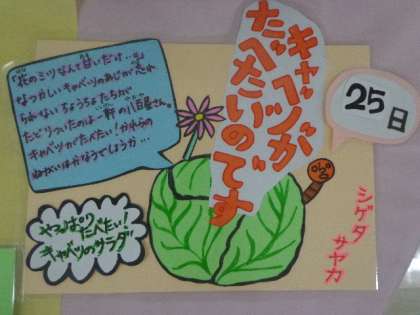 「花のミツなんて甘いだけ…。」
なつかしいキャベツのあじが忘れ
られないちょうちょたちが
たどりついたのは一軒の八百屋さん。
キャベツがたべたい!かれらの
ねがいはかなうでしょうか…
キャベツが
たべたいのです
25日
シゲタ
サヤカ
やっぱりたべたい!
キャベツのサラダ